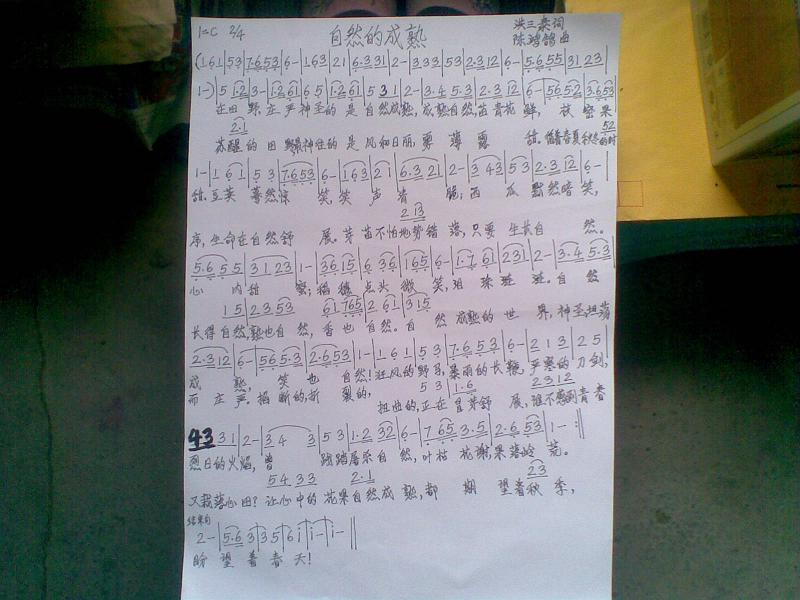 1=C 2/4 自然的成熟 洪三泰词
陈鸿鹄曲
(161|53|7.653|6-|163|21|6.331|2-|333|53|2.312|6-|5.655|31 23|
1-)|5 12|3-|12 61|65|12 61|5 31|2-|3.4 53|2.3 12|6-|5652|3.653|
在田野,庄严神圣的是自然成熟,成熟自然,苗青花鲜,枝密果
2.1 52
苏醒的田野最神往的是风和日丽,雾薄露甜.随着春夏秋冬的时
1-|161|53|7.653|6-|163|21|6.3 21|2-|343|53|2.3 12|6-|
甜.豆荚蓦然惊笑,笑声清脆;西瓜默然暗笑,
2 13
序,生命在自然舒展.芽苗不怕地势错落,只要生长自然.
5.655|31 23|1-|36 15|6 36|165|6-|1.7 61|231|2-|3.4 5.3|
心内甜蜜;稻穗点头微笑,泪珠涟涟.自然
15|23 53 61 765|2 61|315
长得自然,熟也自然,香也自然.自然成熟的世界,神圣坦荡
2.3 12|6-|565.3|2.653|1-|161|53|7.653|6-|213|25|
成熟,笑也自然!狂风的野马,暴雨的长鞭,严寒的刀剑,
53 1.6 2312
而庄严.掐断的,折裂的,扭曲的,正在冒芽舒展,谁不感到青春
43 31|2-|34 3|53|1.2 32|6-|7 65 3.5|2.6 53|1-:||
烈日的火焰,曾践踏屠杀自然,叶枯花谢,果落岭荒.
54 33 2.1 23
又栽落心田?让心中的花果自然成熟,都期望着秋季,
结束句
2-|5.6 3|35|6i|i-|i-||
盼望着春天!